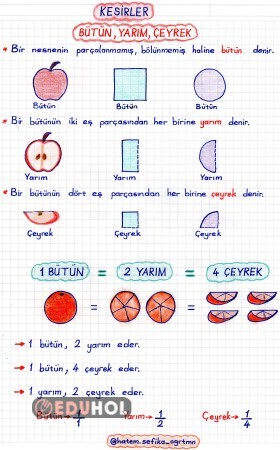 KESİRLER
BÜTÜN, YARIM, ÇEYREK
* Bir nesnenin parçalanmamış, bölünmemiş haline bütün denir.
Bütün Bütün Bütün
* Bir bütünün iki eş parçasından her birine yarım denir.
Yarım Yarım Yarım
* Bir bütünün dört eş parçasından her birine çeyrek denir.
Çeyrek Çeyrek Çeyrek
1 BÜTÜN = 2 YARIM = 4 ÇEYREK
= =
→ 1 bütün, 2 yarım eder.
→ 1 bütün, 4 çeyrek eder.
→ 1 yarım, 2 çeyrek eder.
Bütün → 1/1 Yarım → 1/2 Çeyrek → 1/4
EDUHOL
@hatem.sefika_ogrtmn